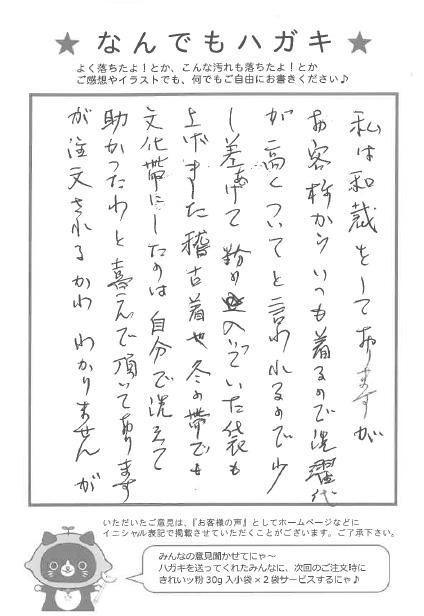 ★ なんでもハガキ ★
よく落ちたよ！とか、こんな汚れも落ちたよ！とか
ご感想やイラストでも、何でもご自由にお書きください♪
私は和裁をしておりますが
お客様からいつも着るので洗濯代
が高くついてと言われるので少
し差あげて粉の入っていた袋も
上げました稽古着や冬の帯でも
文化帯にしたのは自分で洗えて
助かったわと喜んで頂いております
が注文されるかわ わかりませんが
いただいたご意見は、『お客様の声』としてホームページなどに
イニシャル表記で掲載させていただくことがございます。ご了承下さい。
みんなの意見聞かせてにゃ～
ハガキを送ってくれたみんなに、次回のご注文時に
きれいッ粉 30g 入小袋 × 2 袋サービスするにゃ♪